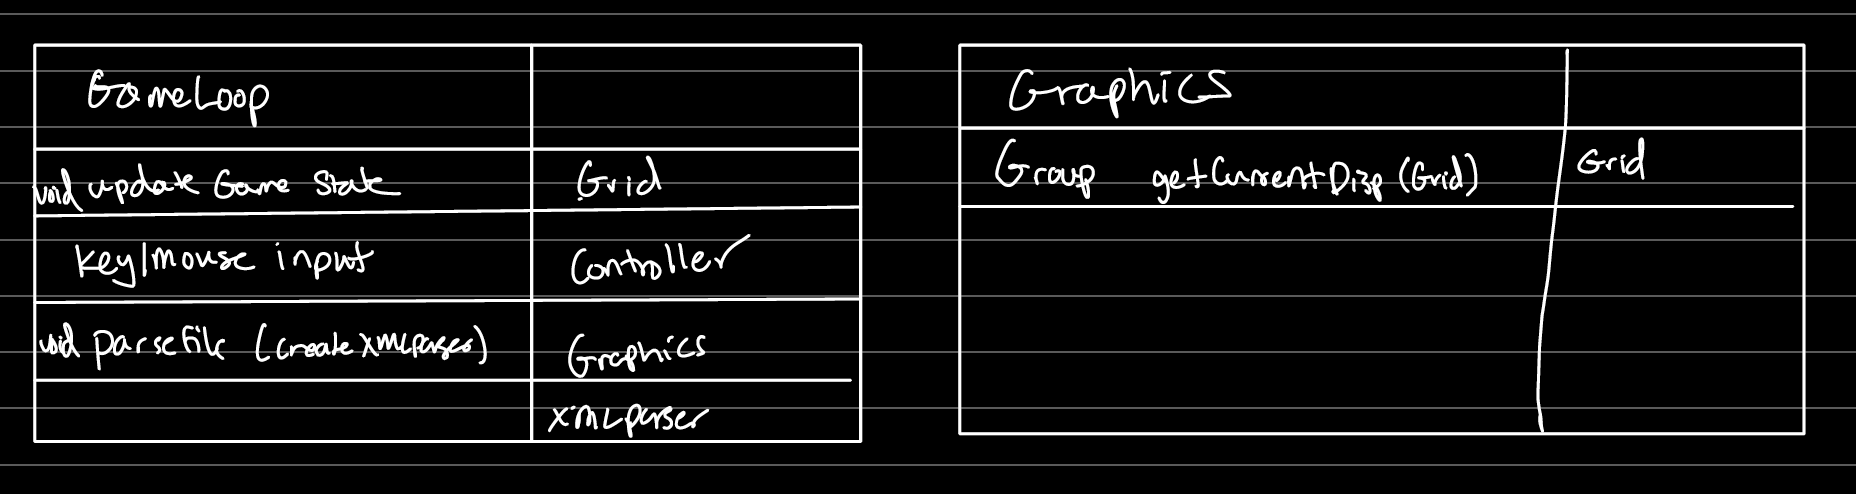 GameLoop
void update Game State Grid
key/mouse input Controller
void parsefile (create xmlparser) Graphics
xmlparser
Graphics
Group getCurrentDisp (Grid) Grid